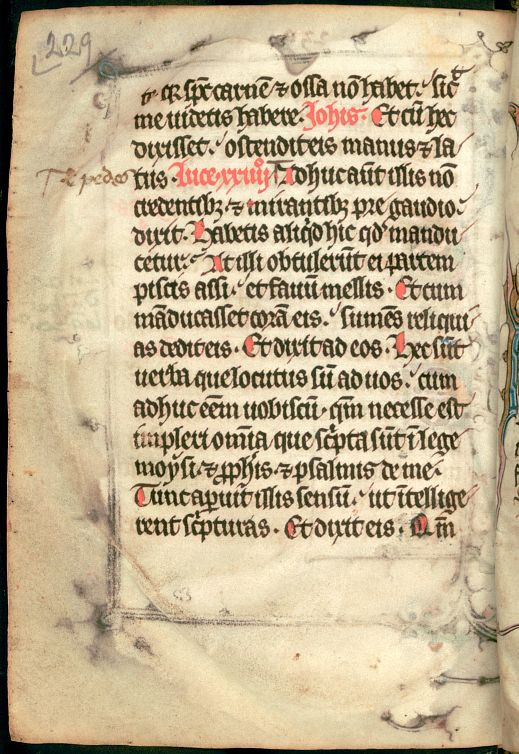 229
q̄ sp̄c carnē ⁊ ossa nō habet. sic̄
me uidetis habere. Joh̄is. Et cū hec
dixisset. ostendit eis manus ⁊ la
⁊ pedes
tus. Luce xxiiij Adhuc aūt illis nō
credentibȝ. ⁊ mirantibȝ pre gaudio.
dixit. Habetis aliq̄d hic qd̄ mandu
cetur. At illi obtulerūt ei partem
piscis assi. et fauum mellis. Et cum
māducasset corā eis. sumēs reliqui
as dedit eis. Et dixit ad eos. Hec sūt
uerba que locutus sū ad uos. cum
adhuc eēm uobiscū. qm̄ necesse est
impleri omīa que sc̄pta sūt ī lege
moysi. ⁊ ꝓph̄is. ⁊ psalmis de me.
Tunc aperuit illis sensū. ut ītellige
rent sc̄pturas. Et dixit eis. Qm̄